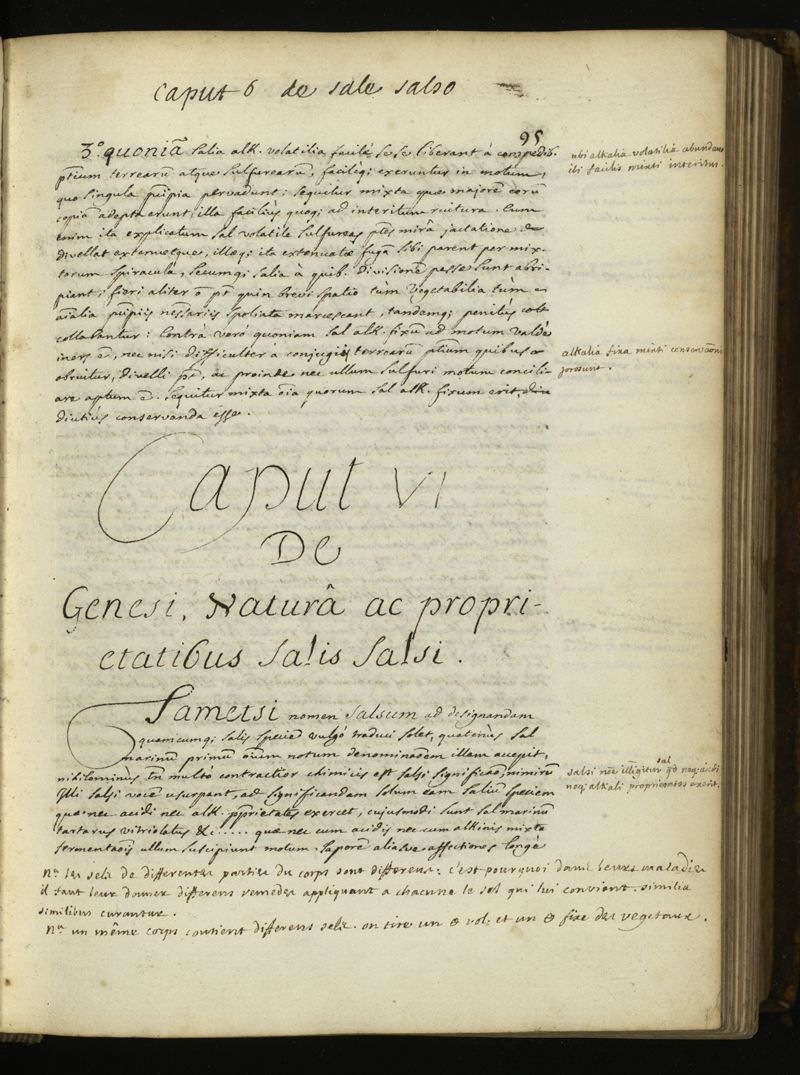 Caput 6 de sale salso
95
3.° quoniã salia alk. volatilia facilè sese liberant à compedib.
ptium terrearũ atque sulfurearũ, facilèq; exeruntur in motum,
quo singula pṽipia pervadunt; sequitur mixta quæ majorẽ eorũ
copiã adepta erunt; illa faciliùs quoq; ad interitum ruitura. Cum
enim ita explicatum sal volatile sulfureas ptes mirâ jactatione
divellat extenuetque, illæq; ita extenuatæ fugã sibi parent per mix-
torum spiracula, secumq; salia à quib. divisionẽ passæ sunt abri-
piant; fieri aliter õ pt quin brevi spatio tùm vegetabilia tùm
aĩalia pṽipiis nessariis spoliata marcescant, tandemq; penitùs
collabantur: Contrà verò quoniam sal alk. fixũ ad motum valdè
iners ẽ, nec nisi difficulter a conjugiis terrearũ ptium quibus
obruitur, divelli pt, ac proinde nec ullum sulfuri motum concili-
are aptum ẽ. Sequitur mixta oĩa quorum sal alk. fixum erit,
diutiùs conservanda esse.
ubi alkalia volatilia abundant
ibi facilis mixti interitus.
alkalia fixa mixti conservãoni
prosunt.
Caput VI
De
Genesi, Naturâ ac propri-
etatibus Salis Salsi.
Tametsi nomen Salsum ad designandam
quamcumq; salis speciẽ vulgò traduci solet, quatenùs sal
marinũ primũ oĩum notum denominãõem illam accepit,
nihilominùs tñ multò contractior chimicis est salsi significaõ, nimirũ
Illi salsi vocẽ usurpant, ad significandam solum eam saliũ speciem
quæ nec acidi nec alk. pprietates exercet, cujusmodi sunt sal marinũ
tartarus vitriolatus &c..... quæ nec cum acidis nec cum alkinis mixta
fermentaõis ullum suscipiunt motum. Saporẽ aliasve affectiones longè
sal
salsi nõe illigitur qd neq; acidi
neq; alkali proprietates exerit.
nª les sels de differentes parties du corps sont differens: c'est pourquoi dans leurs maladies
il faut leur donner differens remedes appliquant a chacune le sel qui lui convient. similia
similibus curantur.
nª un même corps contient differens sels. on tire un ⊖ vol. et un ⊖ fixe des vegetaux.